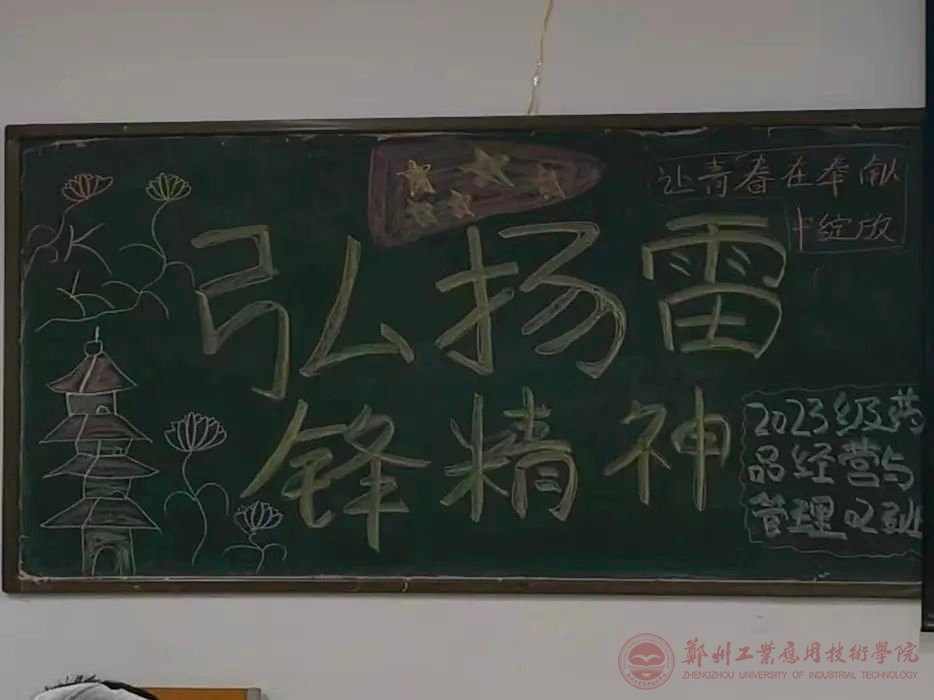 让青春在奉献
中绽放
弘扬雷
锋精神
2023级药
品经营与
管理2班
鄭州工業應用技術學院
ZHENGZHOU UNIVERSITY OF INDUSTRIAL TECHNOLOGY